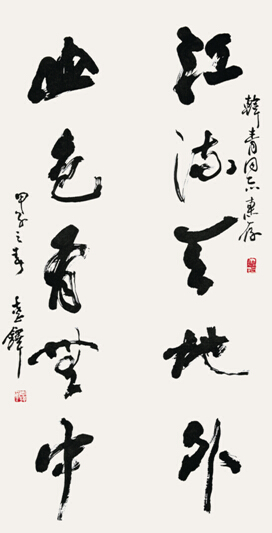 江流天地外
山色有无中
韓青同志惠存
甲子之春